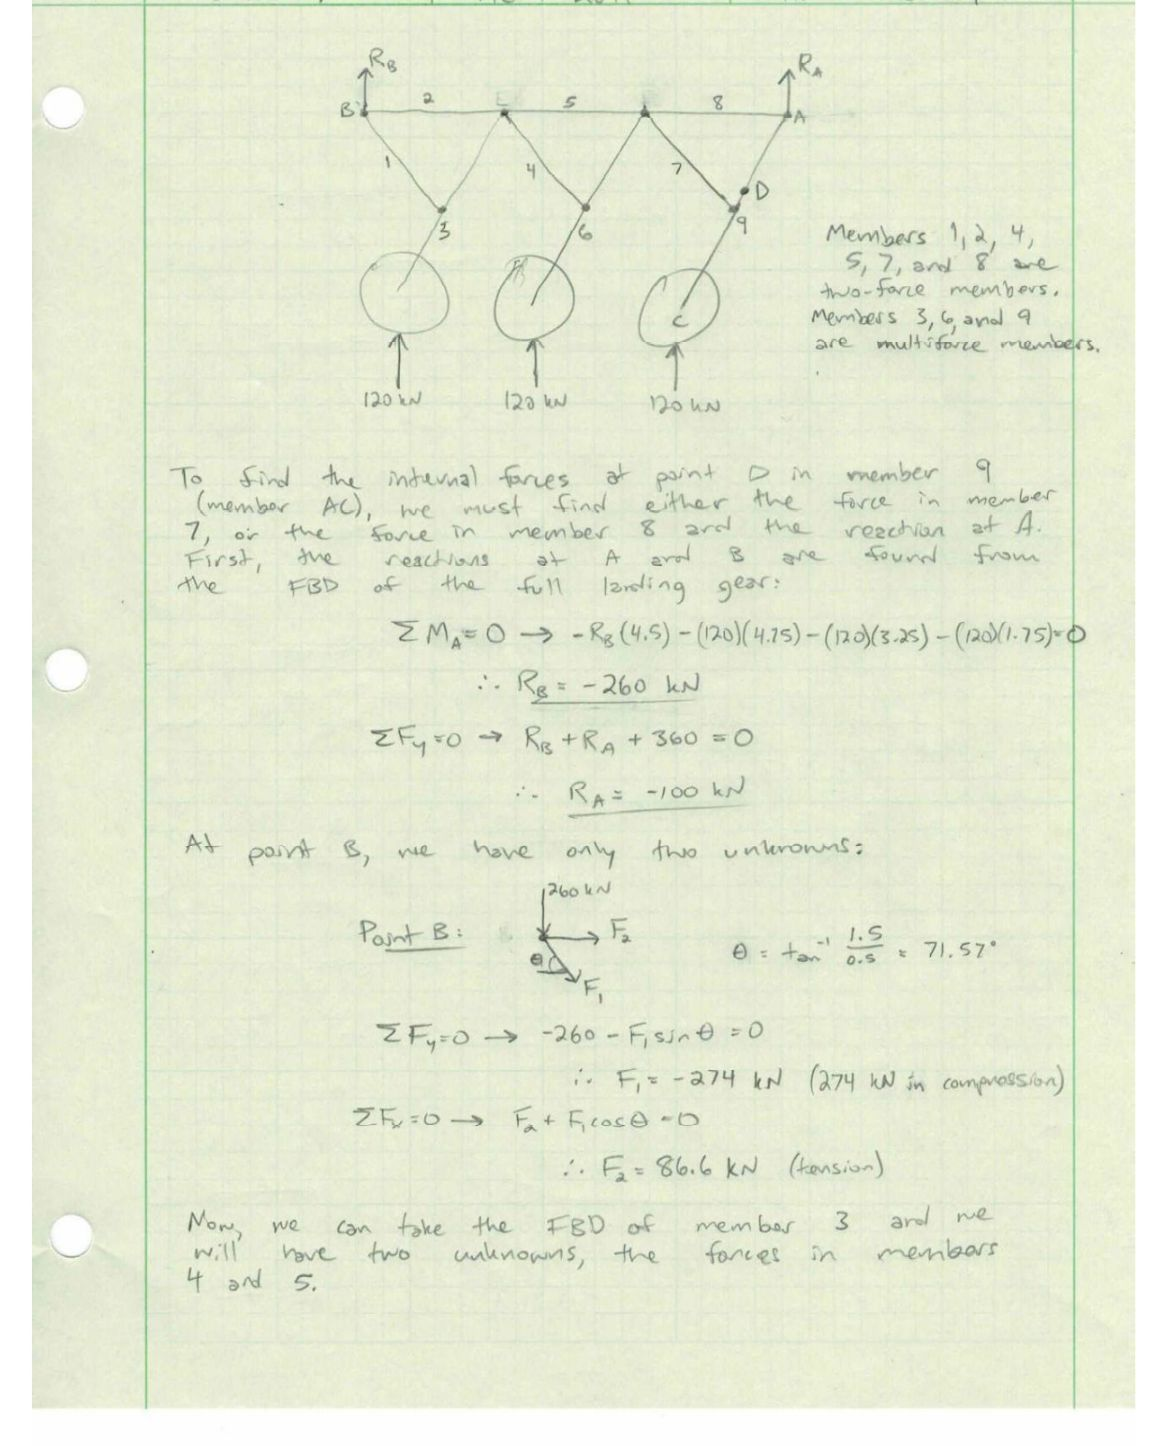 R_B
R_A
B 2 5 8 A
1 4 7 D
3 6 9
Members 1, 2, 4,
5, 7, and 8 are
two-force members.
Members 3, 6, and 9
are multiforce members.
C
120 kN 120 kN 120 kN
To find the internal forces at point D in member 9
(member AC), we must find either the force in member
7, or the force in member 8 and the reaction at A.
First, the reactions at A and B are found from
the FBD of the full landing gear:
ΣM_A=0 → -R_B(4.5) - (120)(4.75) - (120)(3.25) - (120)(1.75)=0
∴ R_B = -260 kN
ΣF_y=0 → R_B + R_A + 360 = 0
∴ R_A = -100 kN
At point B, we have only two unknowns:
260 kN
Point B: F_2
θ = tan⁻¹ 1.5/0.5 = 71.57°
θ
F_1
ΣF_y=0 → -260 - F_1 sin θ = 0
∴ F_1 = -274 kN (274 kN in compression)
ΣF_x=0 → F_2 + F_1 cos θ = 0
∴ F_2 = 86.6 kN (tension)
Now, we can take the FBD of member 3 and we
will have two unknowns, the forces in members
4 and 5.